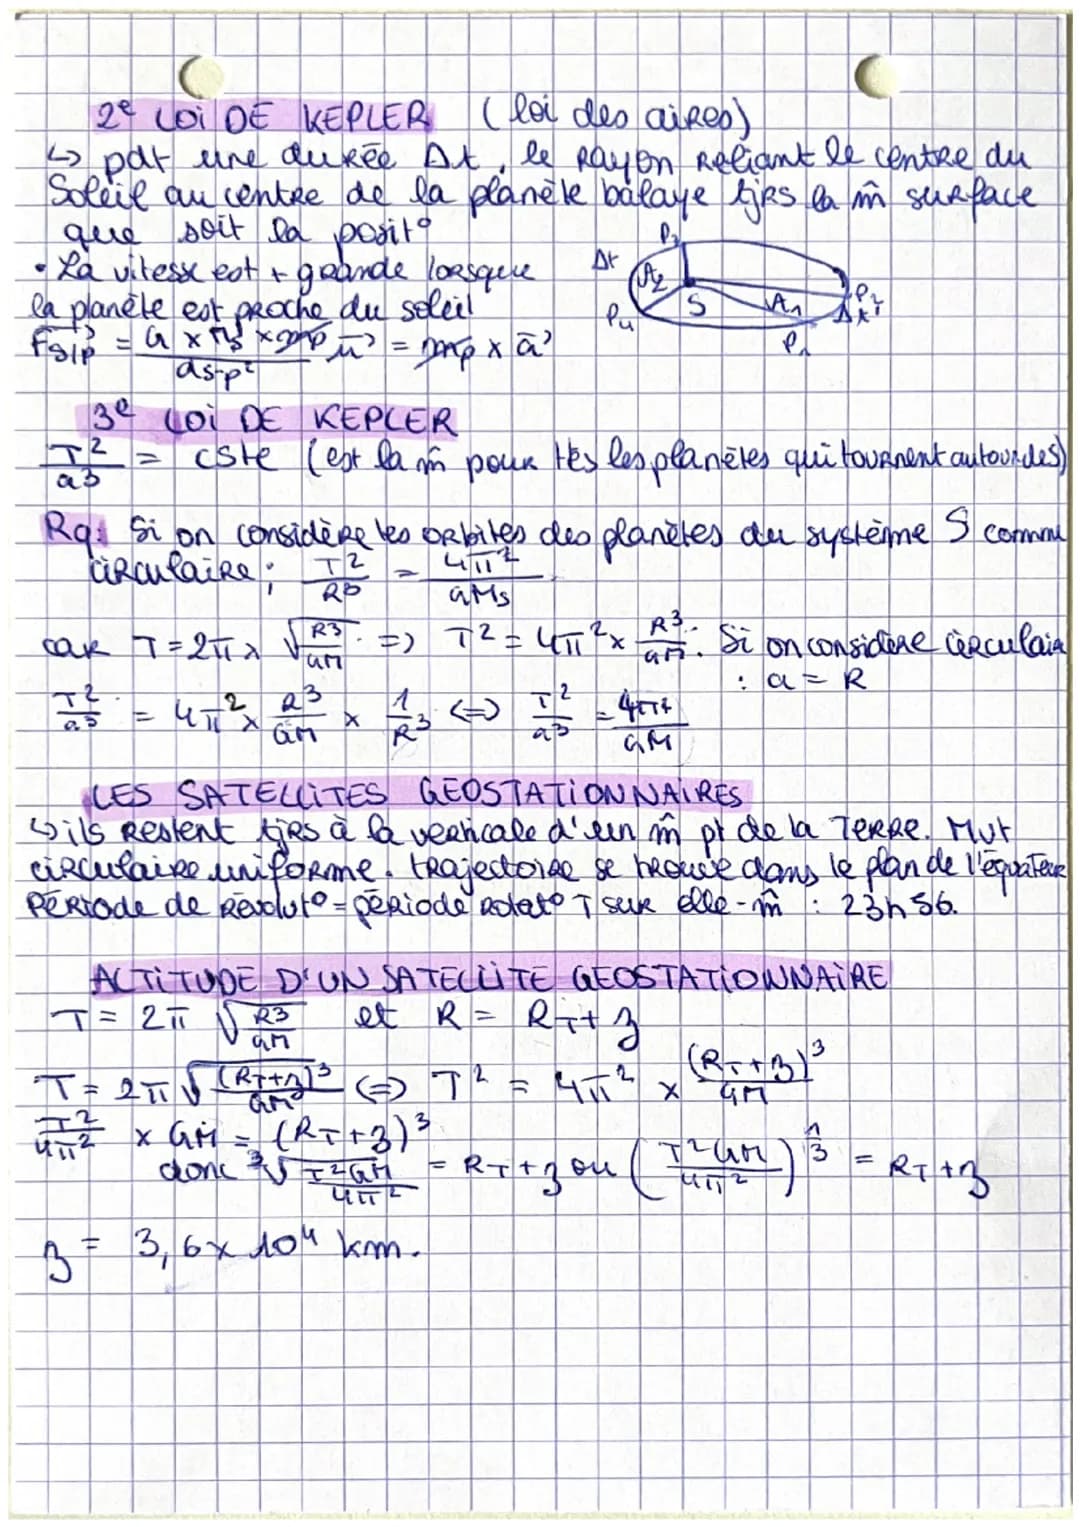 2e LOI DE KEPLER (loi des aires)
↳ pdt une durée Δt, le rayon reliant le centre du
Soleil au centre de la planète balaye tjrs la m̂ surface
que soit la posit°
• La vitesse est + grande lorsque
la planète est proche du soleil
P3
Δt
A2
S
A1
P2
Δt
P4
P1
F⃗S/P = G x Ms x mp / dS-P² u⃗ = mp x a⃗
3e LOI DE KEPLER
T²/a³ = cste (est la m̂ pour ttes les planètes qui tournent autour de S)
Rq: Si on considère les orbites des planètes du système S comme
circulaire ; T²/R³ = 4π²/GMs
car T = 2π x √(R³/GM) => T² = 4π² x R³/GM. Si on considère circulair
: a = R
T²/a³ = 4π² x R³/GM x 1/R³ <=> T²/a³ = 4π²/GM
LES SATELLITES GEOSTATIONNAIRES
↳ ils restent tjrs à la verticale d'un m̂ pt de la TERRE. Mvt
circulaire uniforme. trajectoire se trouve dans le plan de l'équateur
Période de révolut° = période rotat° T sur elle-m̂ : 23h56.
ALTITUDE D'UN SATELLITE GEOSTATIONNAIRE
T = 2π √(R³/GM) et R = RT + z
T = 2π √((RT+z)³/GM) <=> T² = 4π² x (RT+z)³/GM
T²/4π² x GM = (RT+z)³
donc ³√(T²GM/4π²) = RT+z ou (T²GM/4π²)^1/3 = RT+z
z = 3,6 x 10⁴ km.